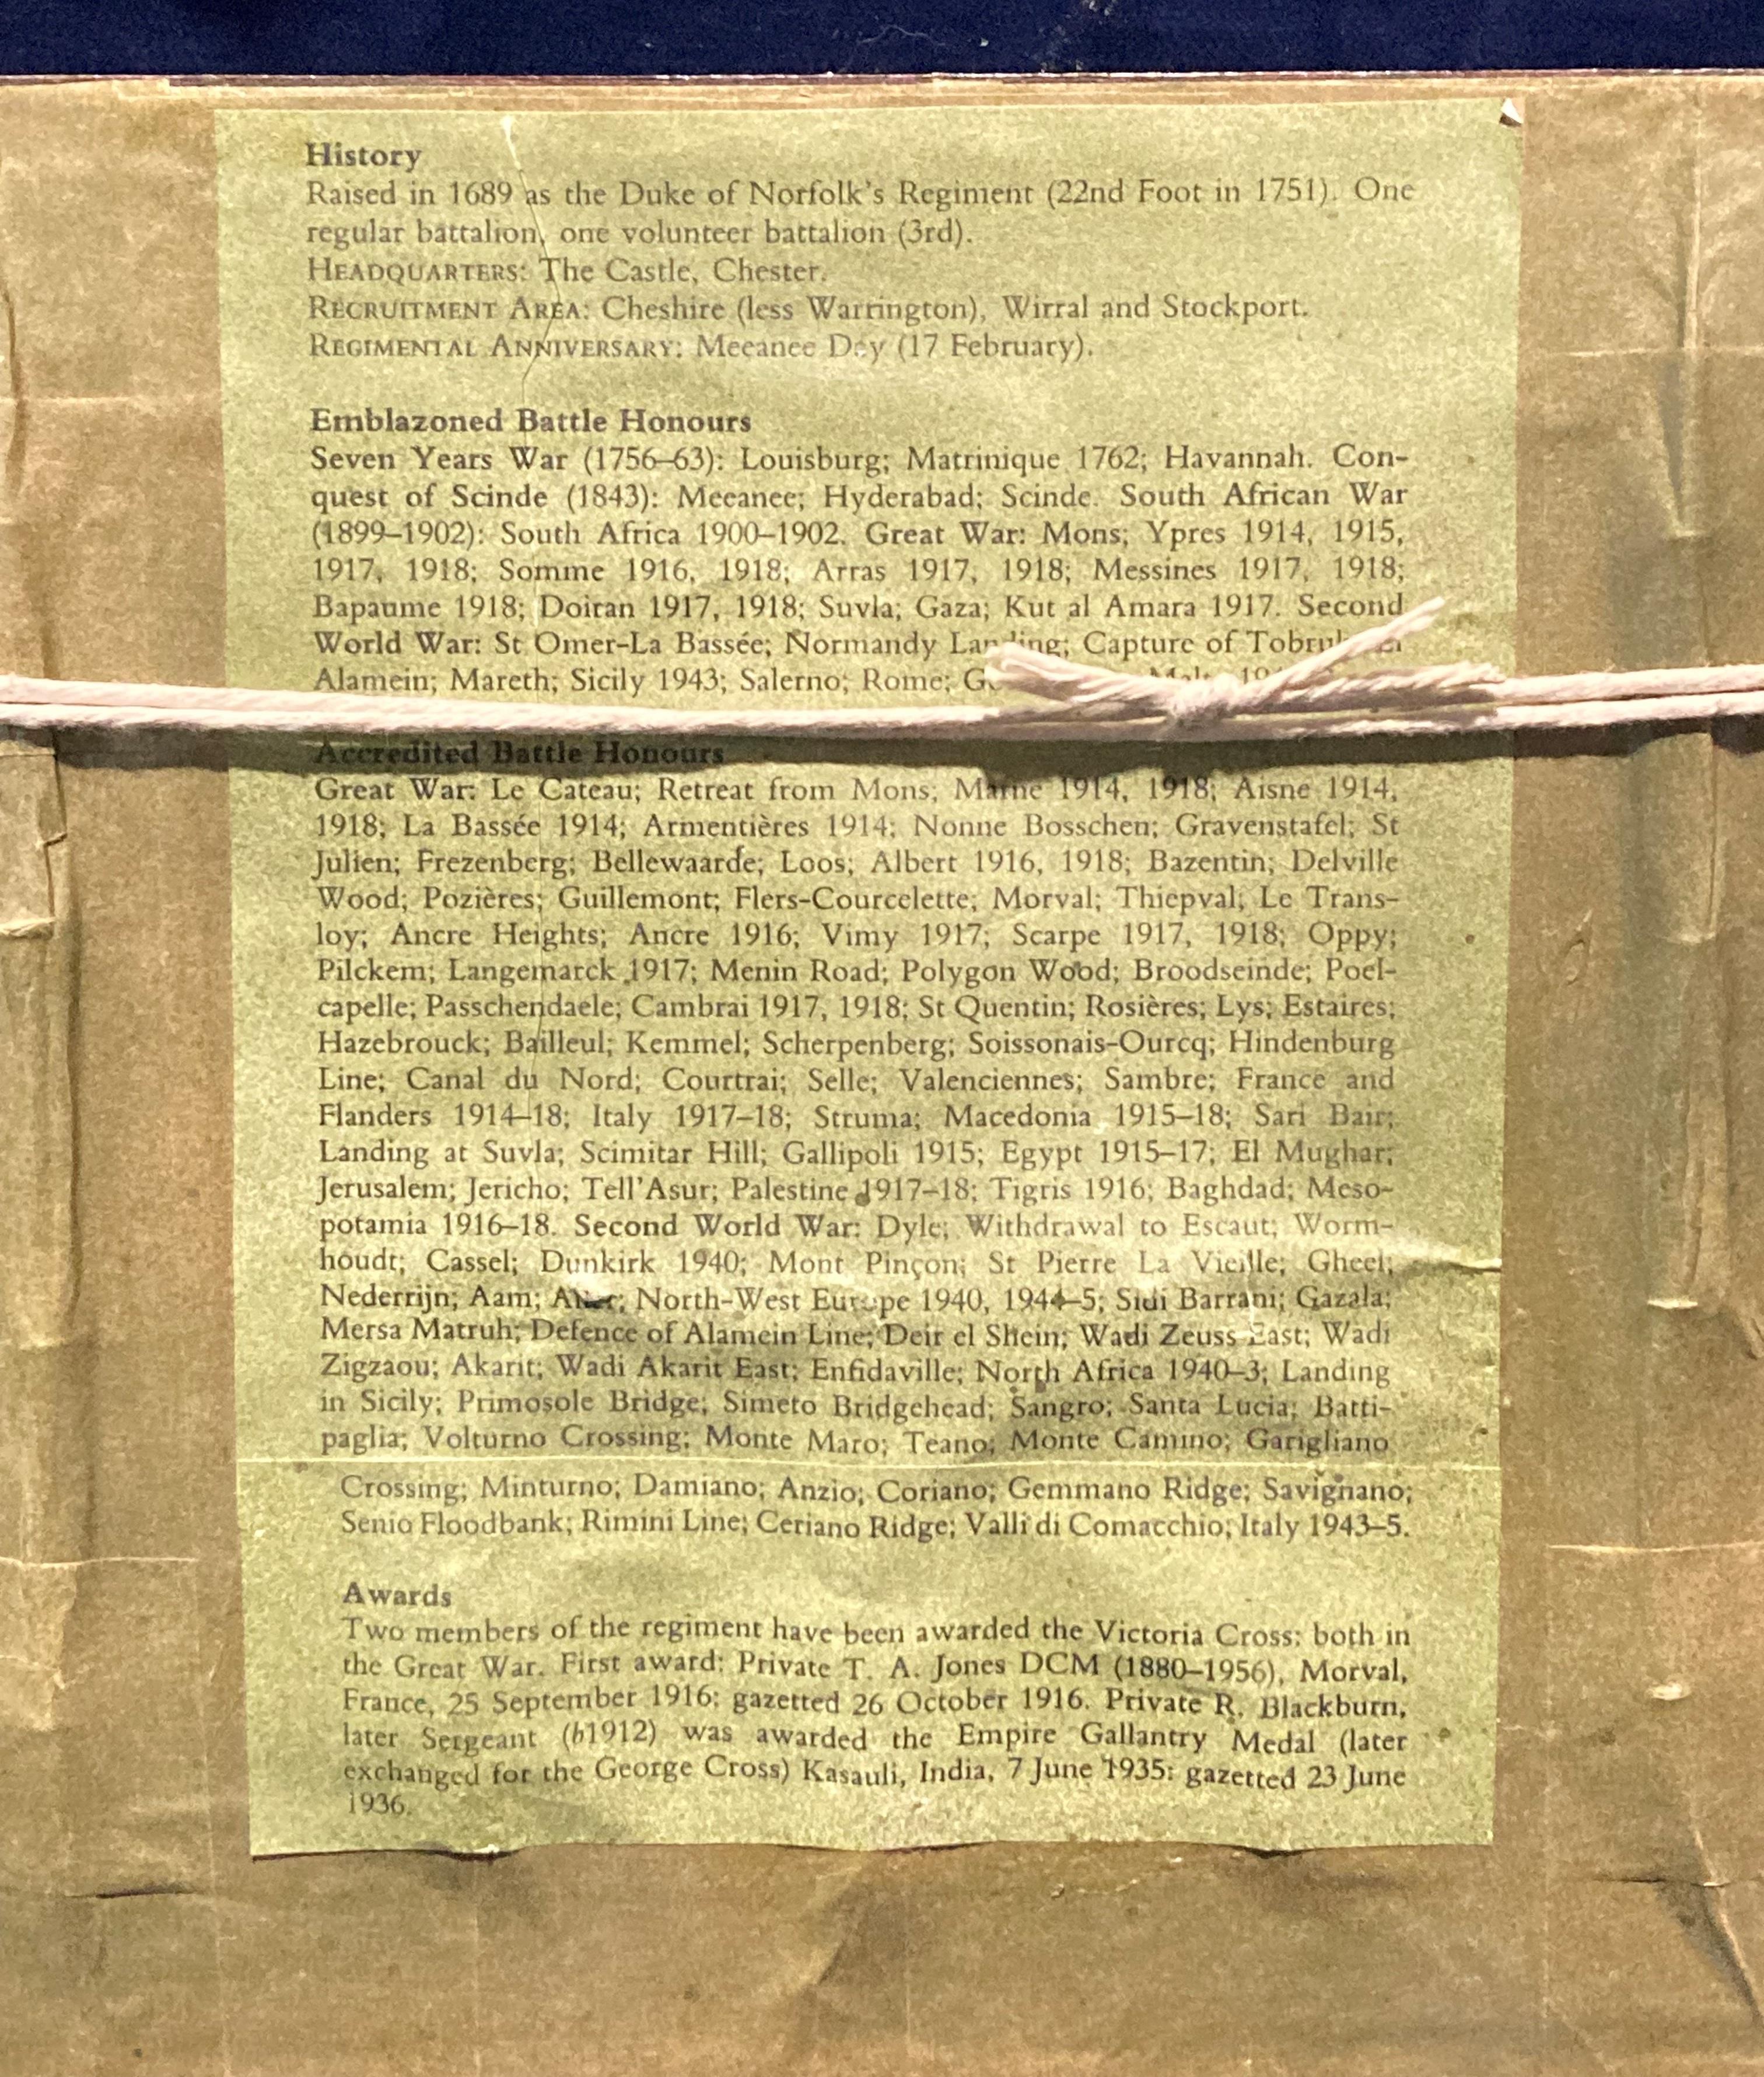 History
Raised in 1689 as the Duke of Norfolk's Regiment (22nd Foot in 1751). One
regular battalion, one volunteer battalion (3rd).
HEADQUARTERS: The Castle, Chester.
RECRUITMENT AREA: Cheshire (less Warrington), Wirral and Stockport.
REGIMENTAL ANNIVERSARY: Meeanee Day (17 February).
Emblazoned Battle Honours
Seven Years War (1756–63): Louisburg; Matrinique 1762; Havannah. Con-
quest of Scinde (1843): Meeanee; Hyderabad; Scinde. South African War
(1899–1902): South Africa 1900–1902. Great War: Mons; Ypres 1914, 1915,
1917, 1918; Somme 1916, 1918; Arras 1917, 1918; Messines 1917, 1918;
Bapaume 1918; Doiran 1917, 1918; Suvla; Gaza; Kut al Amara 1917. Second
World War: St Omer-La Bassée; Normandy Landing; Capture of Tobruk;
Alamein; Mareth; Sicily 1943; Salerno; Rome;
Accredited Battle Honours
Great War: Le Cateau; Retreat from Mons; Marne 1914, 1918; Aisne 1914,
1918; La Bassée 1914; Armentières 1914; Nonne Bosschen; Gravenstafel; St
Julien; Frezenberg; Bellewaarde; Loos; Albert 1916, 1918; Bazentin; Delville
Wood; Pozières; Guillemont; Flers-Courcelette; Morval; Thiepval; Le Trans-
loy; Ancre Heights; Ancre 1916; Vimy 1917; Scarpe 1917, 1918; Oppy;
Pilckem; Langemarck 1917; Menin Road; Polygon Wood; Broodseinde; Poel-
capelle; Passchendaele; Cambrai 1917, 1918; St Quentin; Rosières; Lys; Estaires;
Hazebrouck; Bailleul; Kemmel; Scherpenberg; Soissonais-Ourcq; Hindenburg
Line; Canal du Nord; Courtrai; Selle; Valenciennes; Sambre; France and
Flanders 1914–18; Italy 1917–18; Struma; Macedonia 1915–18; Sari Bair;
Landing at Suvla; Scimitar Hill; Gallipoli 1915; Egypt 1915–17; El Mughar;
Jerusalem; Jericho; Tell'Asur; Palestine 1917–18; Tigris 1916; Baghdad; Meso-
potamia 1916–18. Second World War: Dyle; Withdrawal to Escaut; Worm-
houdt; Cassel; Dunkirk 1940; Mont Pinçon; St Pierre La Vieille; Gheel;
Nederrijn; Aam; North-West Europe 1940, 1944–5; Sidi Barrani; Gazala;
Mersa Matruh; Defence of Alamein Line; Deir el Shein; Wadi Zeuss East; Wadi
Zigzaou; Akarit; Wadi Akarit East; Enfidaville; North Africa 1940–3; Landing
in Sicily; Primosole Bridge; Simeto Bridgehead; Sangro; Santa Lucia; Batti-
paglia; Volturno Crossing; Monte Maro; Teano; Monte Camino; Garigliano
Crossing; Minturno; Damiano; Anzio; Coriano; Gemmano Ridge; Savignano;
Senio Floodbank; Rimini Line; Ceriano Ridge; Valli di Comacchio; Italy 1943–5.
Awards
Two members of the regiment have been awarded the Victoria Cross: both in
the Great War. First award: Private T. A. Jones DCM (1880–1956), Morval,
France, 25 September 1916: gazetted 26 October 1916. Private R. Blackburn,
later Sergeant (b1912) was awarded the Empire Gallantry Medal (later
exchanged for the George Cross) Kasauli, India, 7 June 1935: gazetted 23 June
1936.